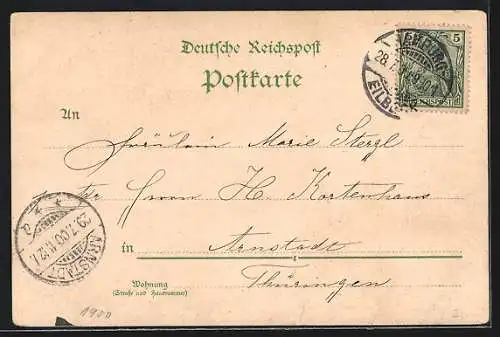 Deutsche Reichspost
Postkarte
5
An
Fräulein Marie Stergl
Herrn H. Kortenhaus
in Arnstadt
Thüringen
Wohnung
(Straße und Hausnummer)
29.7.00
ARNSTADT
1900